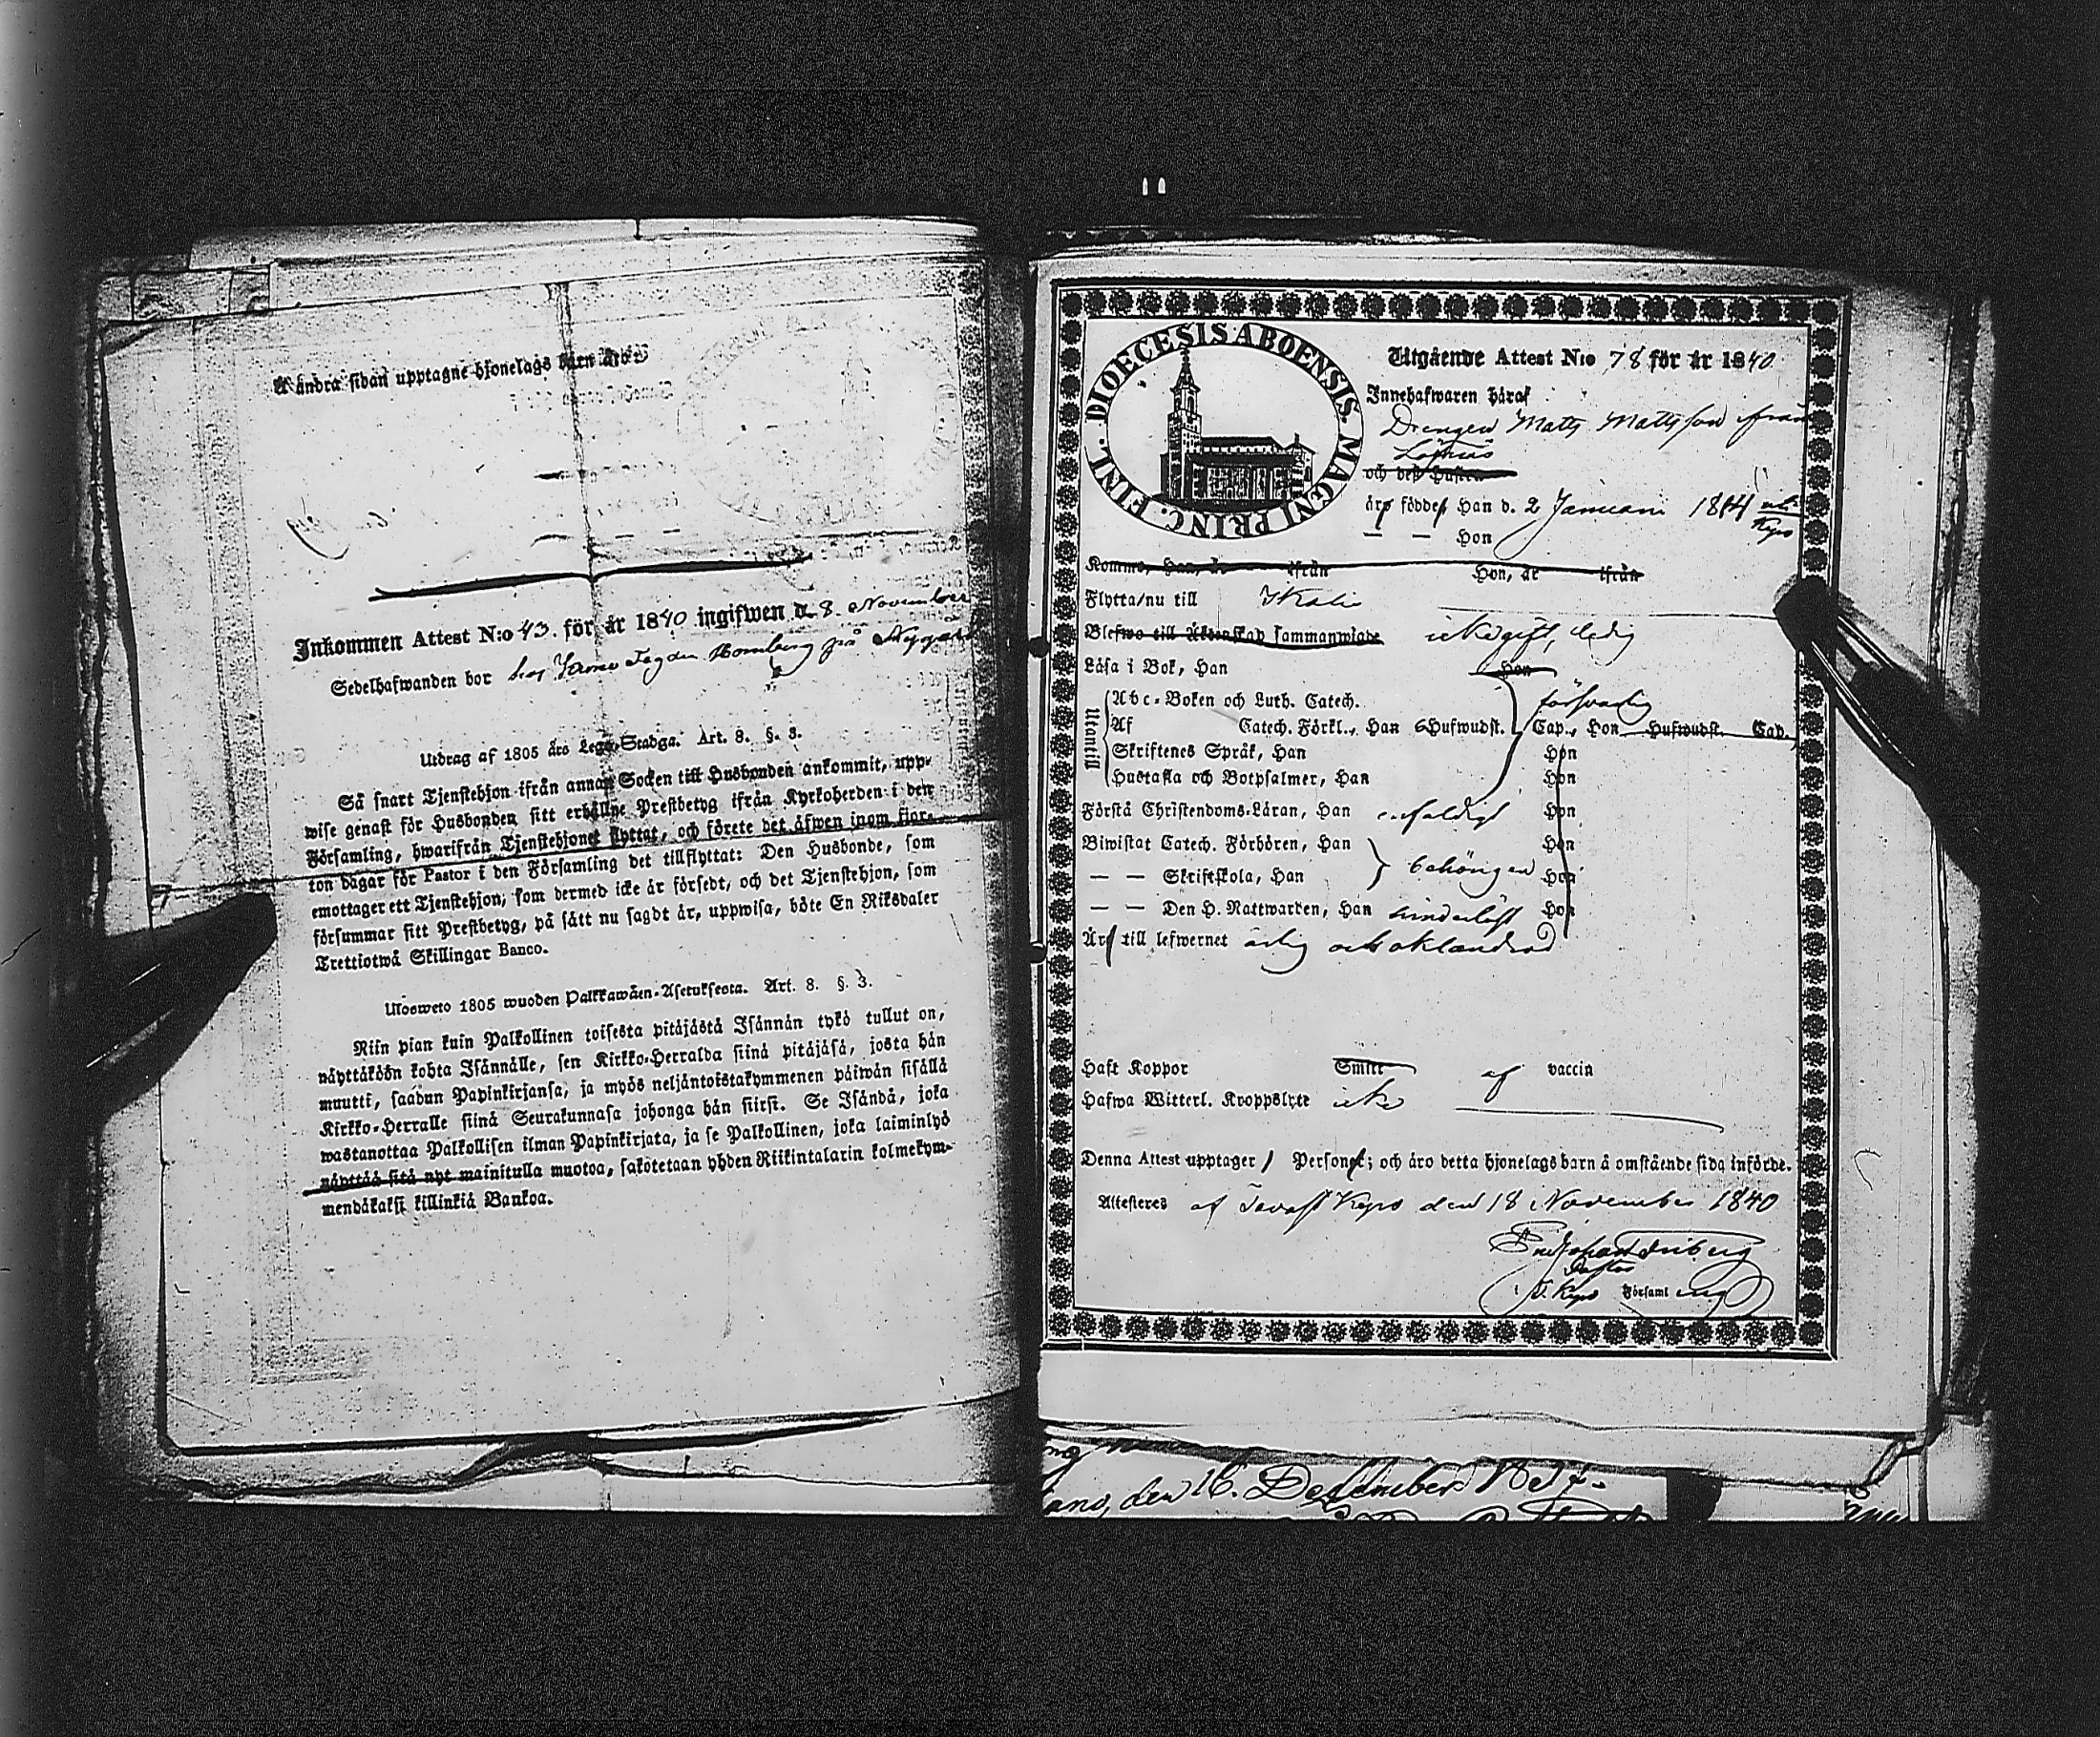 Å andra sidan upptagne hjonelags barn äro:
Inkommen Attest N:o 43. för år 1840 ingifwen d. 8. November
Sedelhafwanden bor hos
Utdrag af 1805 års Lego-Stadga. Art. 8. §. 3.
Så snart Tjenstehjon ifrån annan Socken till Husbonden ankommit, upp-
wise genast för Husbonden sitt erhållne Prestbetyg ifrån Kyrkoherden i den
Församling, hwarifrån Tjenstehjonet flyttat, och förete det äfwen inom fjor-
ton dagar för Pastor i den Församling det tillflyttat: Den Husbonde, som
emottager ett Tjenstehjon, som dermed icke är försedt, och det Tjenstehjon, som
försummar sitt Prestbetyg, på sätt nu sagdt är, uppwisa, böte En Riksdaler
Trettiotwå Skillingar Banco.
Ulosweto 1805 wuoden Palkkawäen-Asetuksesta. Art. 8. §. 3.
Niin pian kuin Palkollinen toisesta pitäjästä Isännän tykö tullut on,
näyttäköön kohta Isännälle, sen Kirkko-Herralda siinä pitäjäsä, josta hän
muutti, saadun Papinkirjansa, ja myös neljäntoistakymmenen päiwän sisällä
Kirkko-Herralle siinä Seurakunnasa johonga hän siirsi. Se Isändä, joka
wastanottaa Palkollisen ilman Papinkirjata, ja se Palkollinen, joka laiminlyö
näyttää sitä nyt mainitulla muotoa, sakotetaan yhden Riikintalarin kolmekym-
mendäkaksi killinkiä Bankoa.
DIOECESIS ABOENSIS. MAGNI PRINC. FINL.
Utgående Attest N:o 78 för år 1840
Innehafwaren häraf
Drengen Matts Mattsson från
och deß Hustru
äro födde, Han d. 2 Januari 1814
— — Hon
Komne, Han, år ifrån Hon, år ifrån
Flytta/nu till Ikalis
Blefwo till Äktenskap sammanwigde ickegift, ledig
Läsa i Bok, Han Hon
Utantill
Abc-Boken och Luth. Catech. försvarlig
Af Catech. Förkl., Han 6 Hufwudst. Cap., Hon Hufwudst. Cap.
Skriftenes Språk, Han Hon
Hustafla och Botpsalmer, Han Hon
Förstå Christendoms-Läran, Han enfaldigt Hon
Biwistat Catech. Förhören, Han Hon
— — Skriftskola, Han behörigen Hon
— — Den H. Nattwarden, Han hinderlöst Hon
Är till lefwernet ärlig och oklandrad
Haft Koppor Smitt af vaccin
Hafwa Witterl. Kroppslyte icke
Denna Attest upptager 1 Personer; och äro detta hjonelags barn å omstående sida införde.
Attesteres af Tavast Kyro den 18 November 1840
Pastor
T. Kyro Församling
den 16. December